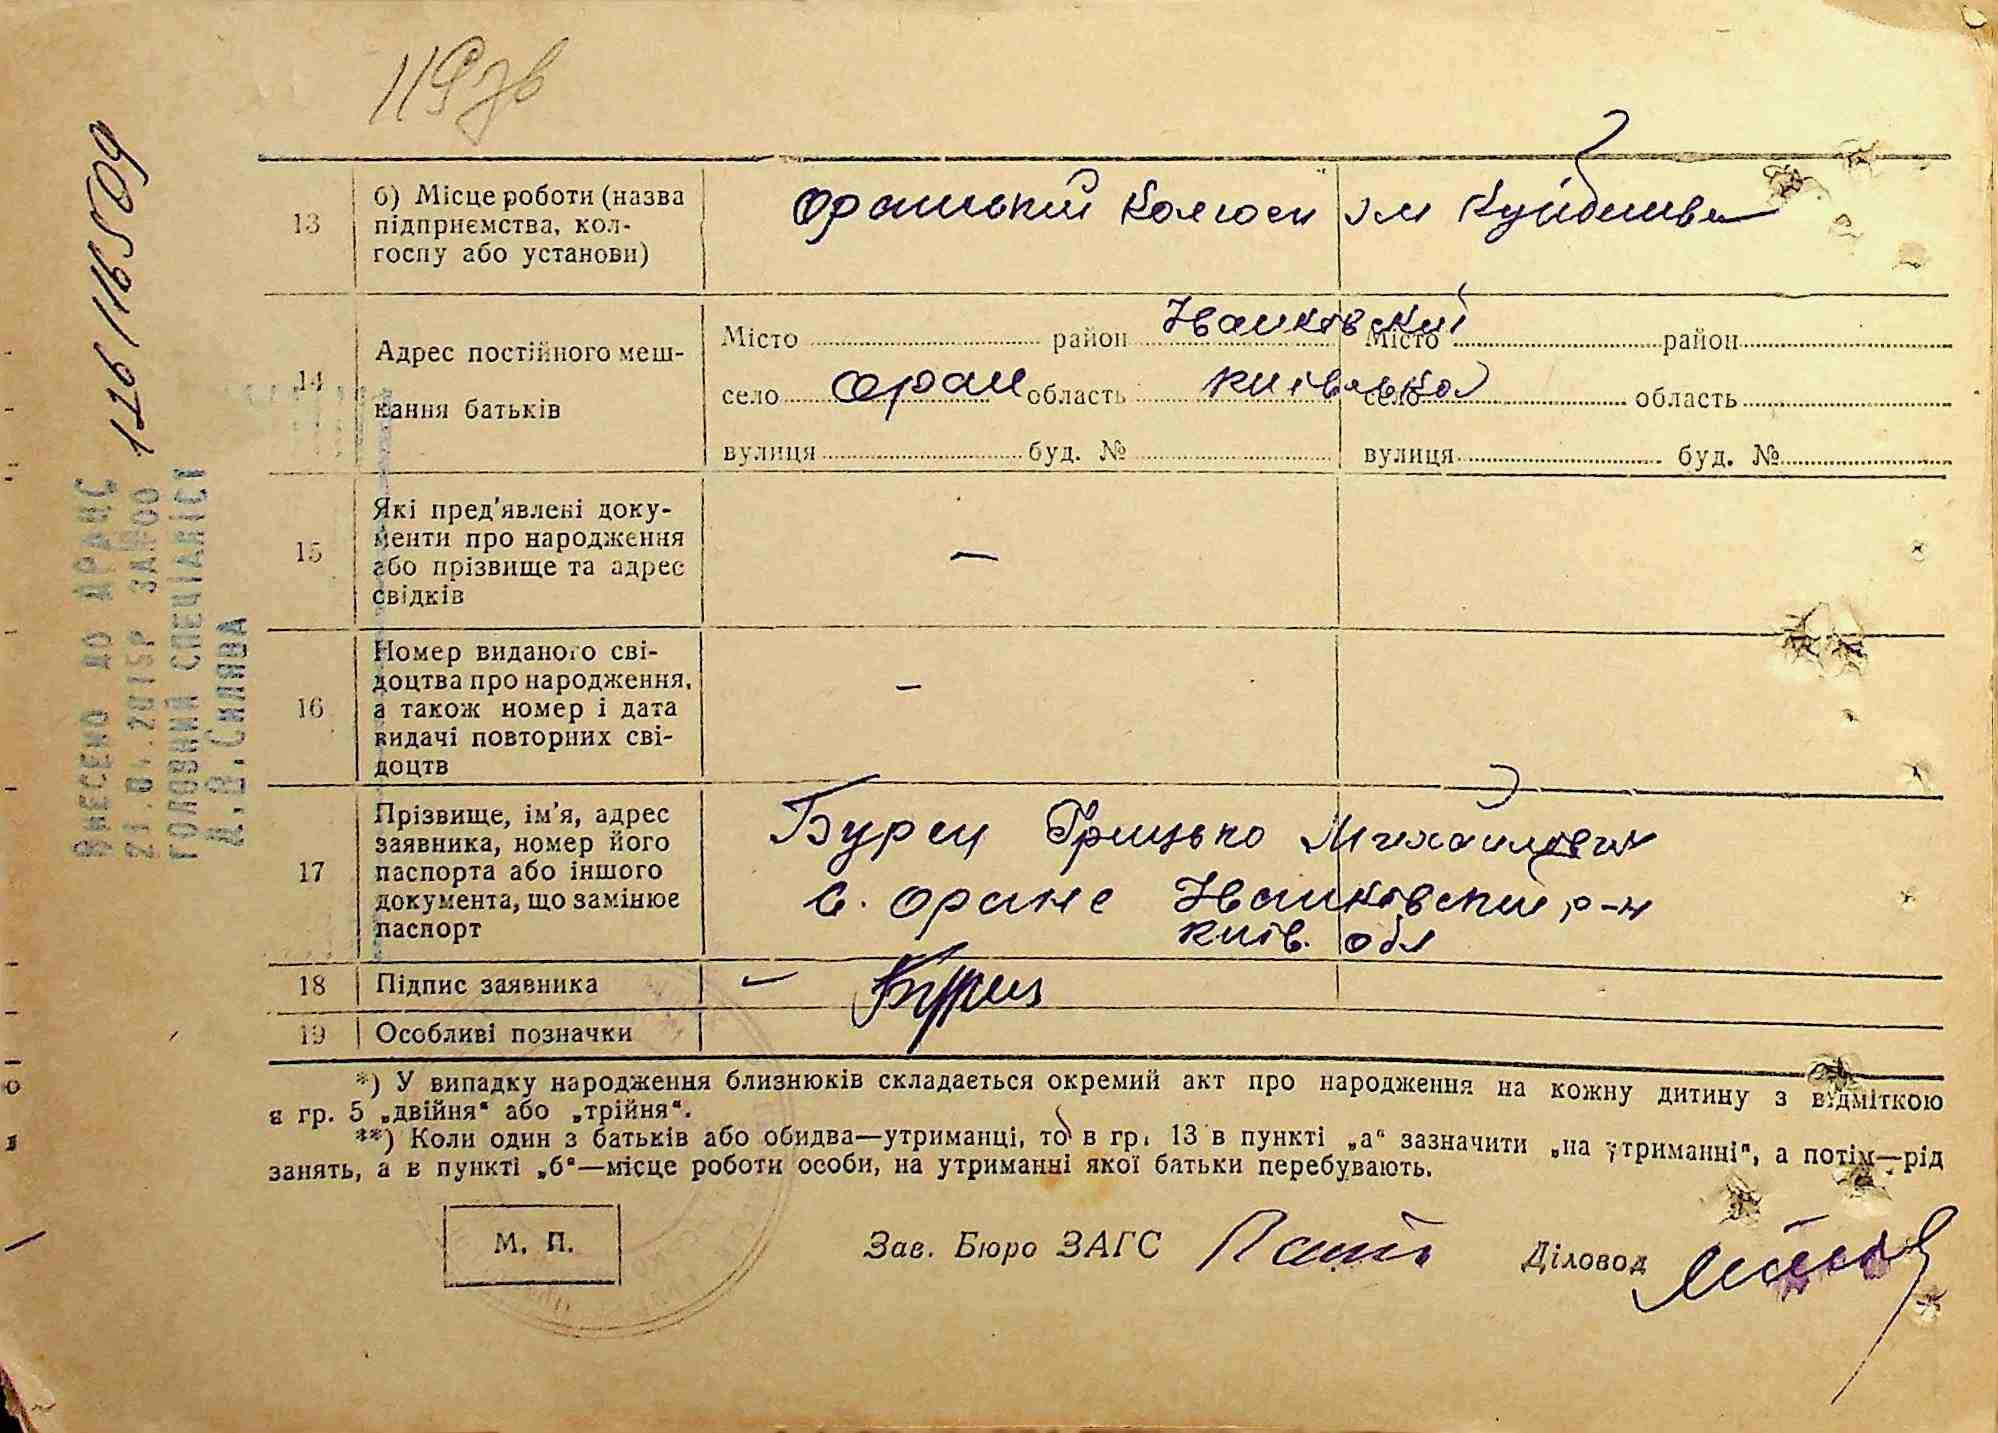 119 зв
116116509
ВНЕСЕНО ДО ДРАЦС
21.04.2015Р ЗА №00
ГОЛОВНИЙ СПЕЦІАЛІСТ
Д.В.СИЛЯВА
13
б) Місце роботи (назва
підприємства, кол-
госпу або установи)
Оранський колгосп ім Куйбишева
14
Адрес постійного меш-
кання батьків
Місто район Іванківський
село Орани область Київська
вулиця буд. №
Місто район
село область
вулиця буд. №
15
Які пред'явлені доку-
менти про народження
або прізвище та адрес
свідків
–
16
Номер виданого сві-
доцтва про народження,
а також номер і дата
видачі повторних сві-
доцтв
–
17
Прізвище, ім'я, адрес
заявника, номер його
паспорта або іншого
документа, що замінює
паспорт
Бурец Грицько Михайлович
с. Оране Іванківський р-н
Київ. обл
18
Підпис заявника
–
19
Особливі позначки
*) У випадку народження близнюків складається окремий акт про народження на кожну дитину з відміткою
в гр. 5 „двійня“ або „трійня“.
**) Коли один з батьків або обидва—утриманці, то в гр. 13 в пункті „а“ зазначити „на утриманні“, а потім—рід
занять, а в пункті „б“—місце роботи особи, на утриманні якої батьки перебувають.
М. П.
Зав. Бюро ЗАГС
Діловод